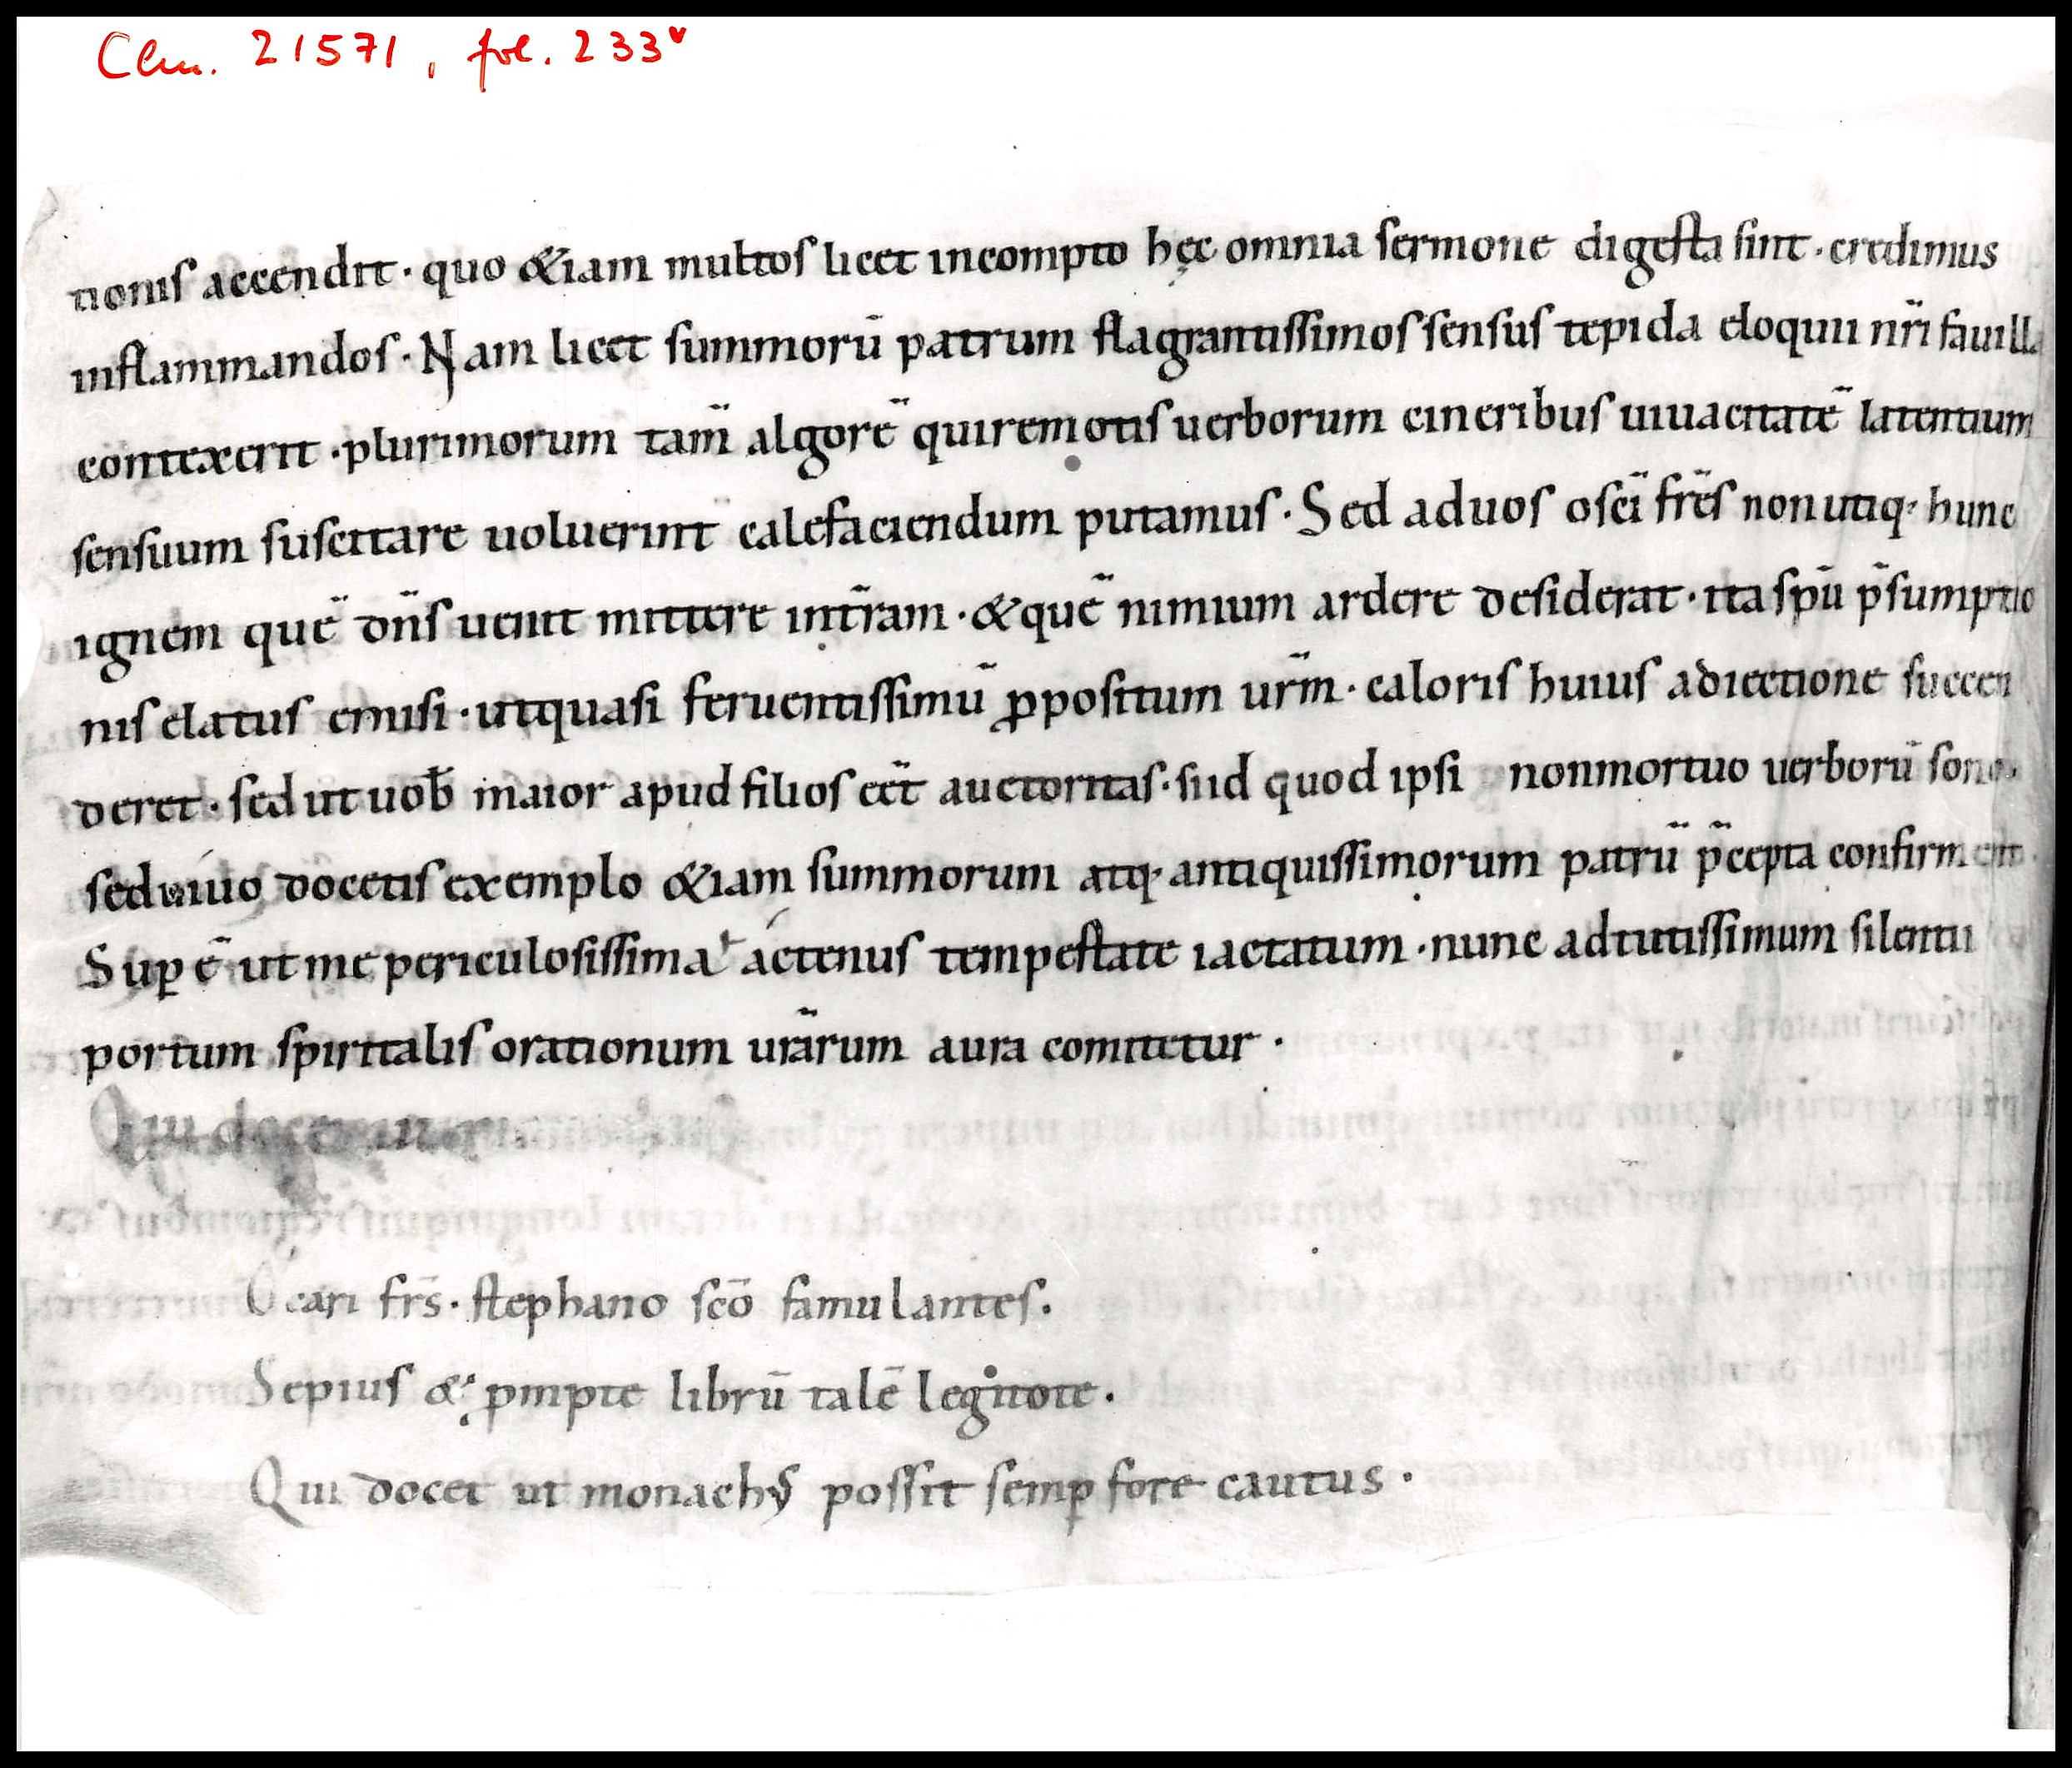 Clm. 21571, fol. 233v
tionis accendit · quo &iam multos licet incompto hęc omnia sermone digesta sint · credimus
inflammandos · Nam licet summorū patrum flagrantissimos sensus tepida eloquii nr̄i fauilla
contexerit · plurimorum tam̄ algorē qui remotis uerborum cineribus uiuacitatē latentium
sensuum suscitare uoluerint calefaciendum putamus · Sed ad uos o sc̄i fr̄es non utiq; hunc
ignem quē dn̄s uenit mittere in tr̄am · & quē nimium ardere desiderat · ita spū p̄sumptio
nis elatus emisi · ut quasi feruentissimū ꝓpositum ur̄m · caloris huius adiectione succen
deret · sed ut uob̄ maior apud filios eēt auctoritas · si id quod ipsi non mortuo uerborū sono ·
sed uiuo docetis exemplo &iam summorum atq; antiquissimorum patrū p̄cepta confirment ·
Suꝑ ē ut me periculosissima actenus tempestate iactatum · nunc ad tutissimum silentii
portum spiritalis orationum ur̄arum aura comitetur ·
Qui docet
O cari fr̄s · stephano sc̄o famulantes .
Sepius & ꝓmpte librū talē legitote .
Qui docet ut monachꝰ possit semꝑ fore cautus ·